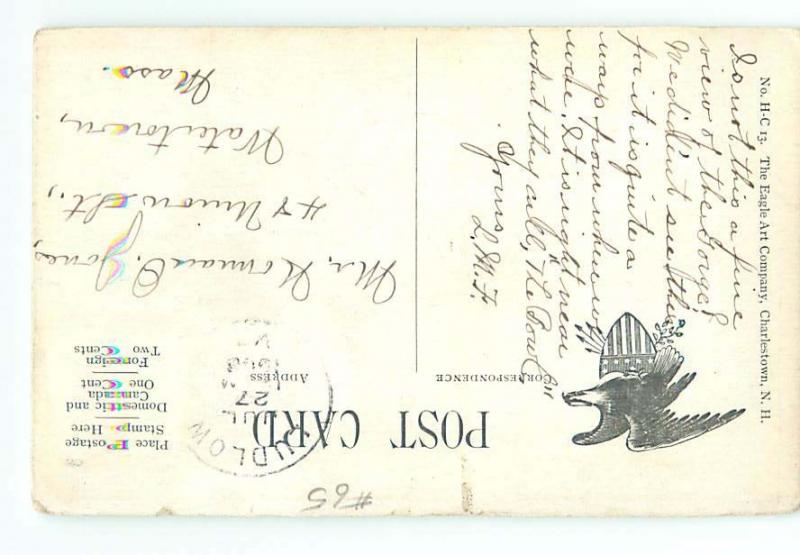 No. H-C 13. The Eagle Art Company, Charlestown, N. H.
POST CARD
CORRESPONDENCE
ADDRESS
Place Postage
Stamp Here
Domestic and
Canada
One Cent
Foreign
Two Cents
UDLOW
JUL
27
Is not this a fine
view of the Gorge?
We didn't see this
for it is quite a
ways from where we
were. It is right near
what they call, "The Bowl"
Yours,
L.M.F.
Mr. Norman O. Jones,
48 Union St.,
Watertown,
Mass.
#65